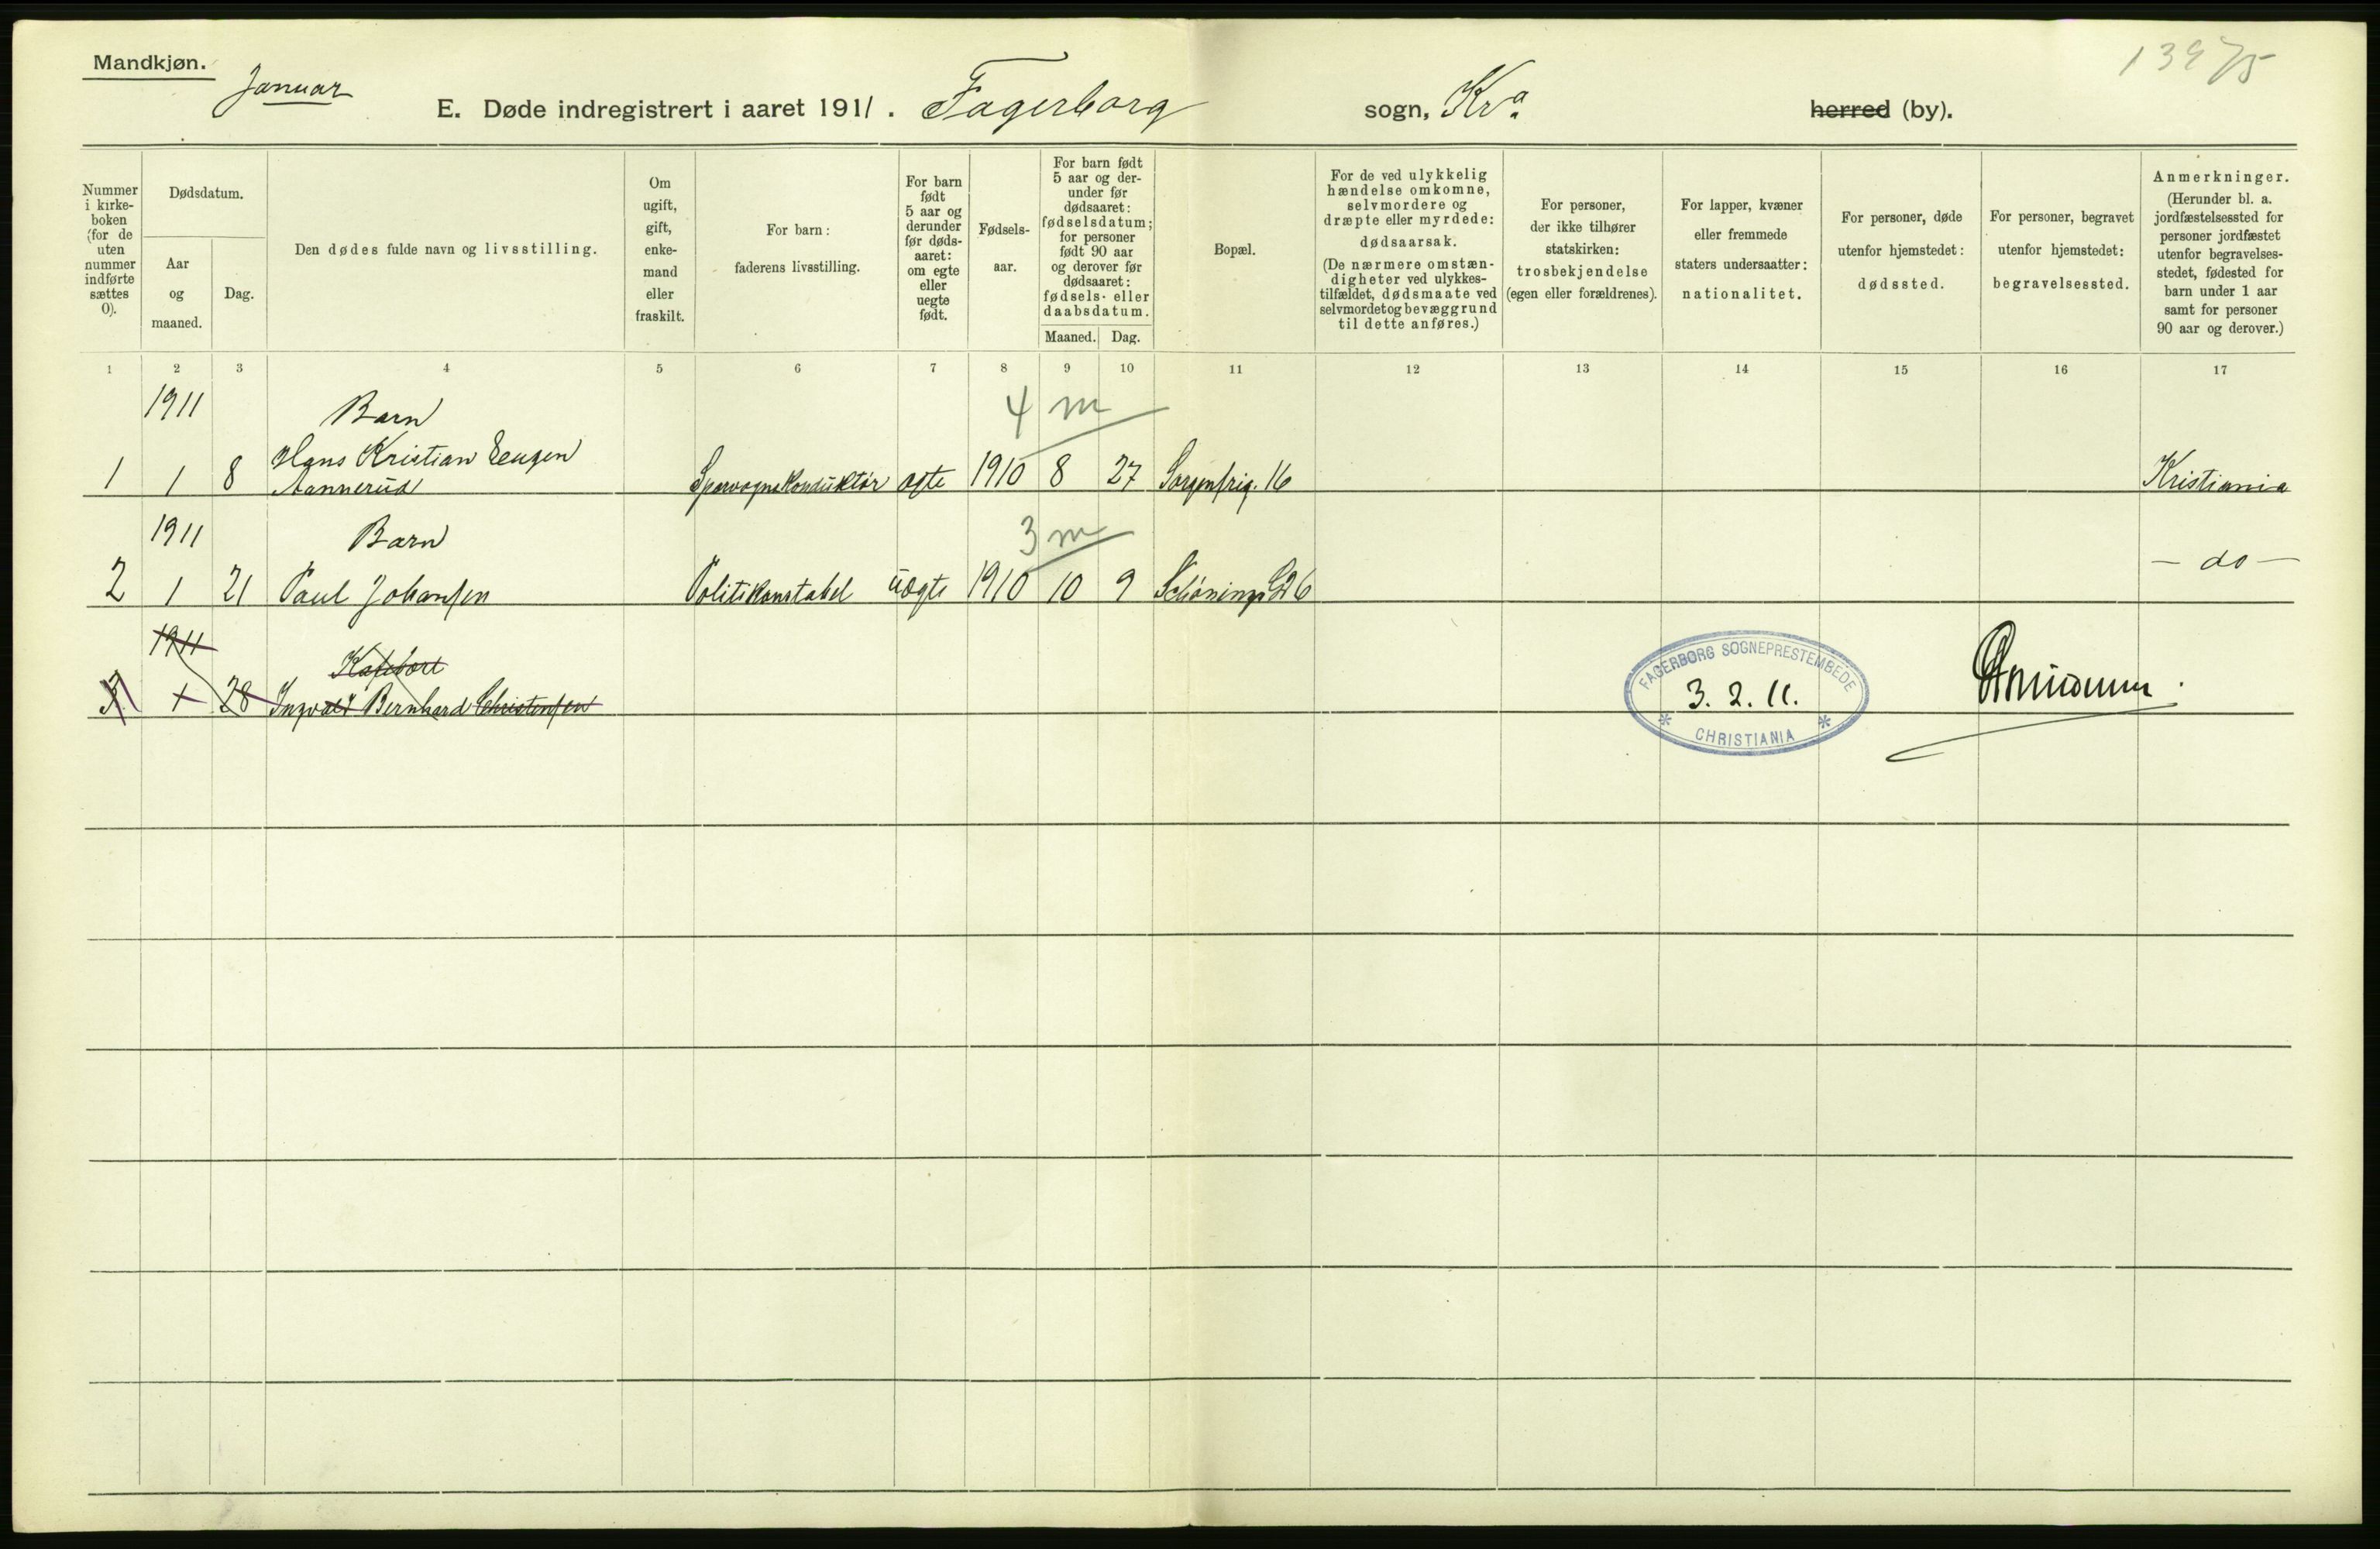 Mandkjøn.
Januar
13975
E. Døde indregistrert i aaret 1911. Fagerborg sogn, Kra. herred (by).
Nummer i kirkeboken (for de uten nummer indførte sættes 0).
Dødsdatum.
Aar og maaned.
Dag.
Den dødes fulde navn og livsstilling.
Om ugift, gift, enkemand eller fraskilt.
For barn: faderens livsstilling.
For barn født 5 aar og derunder før dødsaaret: om egte eller uegte født.
Fødselsaar.
For barn født 5 aar og derunder før dødsaaret: fødselsdatum; for personer født 90 aar og derover før dødsaaret: fødsels- eller daabsdatum.
Maaned. Dag.
Bopæl.
For de ved ulykkelig hændelse omkomne, selvmordere og dræpte eller myrdede: dødsaarsak. (De nærmere omstændigheter ved ulykkestilfældet, dødsmaate ved selvmordet og bevæggrund til dette anføres.)
For personer, der ikke tilhører statskirken: trosbekjendelse (egen eller forældrenes).
For lapper, kvæner eller fremmede staters undersaatter: nationalitet.
For personer, døde utenfor hjemstedet: dødssted.
For personer, begravet utenfor hjemstedet: begravelsessted.
Anmerkninger. (Herunder bl. a. jordfæstelsessted for personer jordfæstet utenfor begravelsesstedet, fødested for barn under 1 aar samt for personer 90 aar og derover.)
1 2 3 4 5 6 7 8 9 10 11 12 13 14 15 16 17
1911 Barn 4 m
Hans Kristian Eugen
1 1 8 Aannerud Sporvognskonduktør ægte 1910 8 27 Sorgenfrig. 16 Kristiania
1911 Barn 3 m
2 1 21 Paul Johansen Politikonstabel uægte 1910 10 9 Schønings Gd 6 - do -
1911
3 1 28 Ingvald Bernhard Christensen
FAGERBORG SOGNEPRESTEMBEDE
3. 2. 11.
CHRISTIANIA